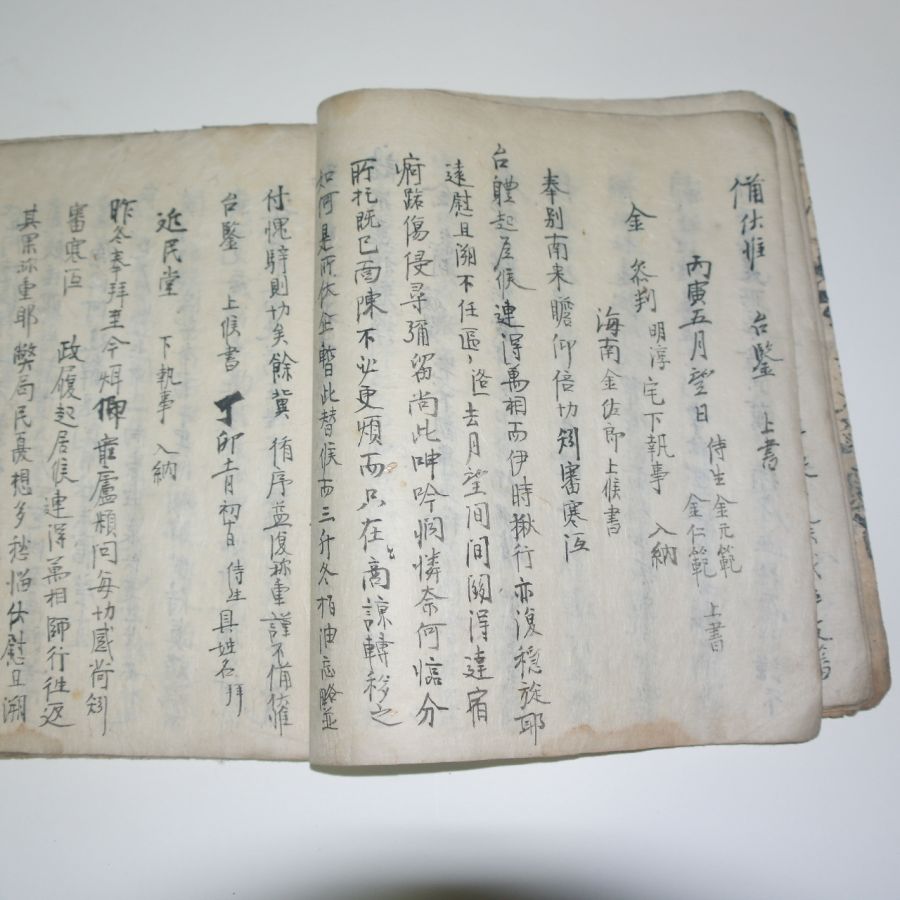 備伏惟 台鑒 上書
丙寅五月望日 侍生 金元範
金仁範 上書
金 參判 明淳 宅下執事 入納
海南金佐郎上候書
奉別南來瞻仰倍切 審寒沍
台體起居候連得萬相而伊時 行亦復穩旋耶
遠慰且溯不任區區 去月望間間關得達宿
痾路傷侵尋彌留尚此呻吟悶憐奈何 分
所托旣已面陳不必更煩而只在商諒轉移之
如何是所伏企暫此替候而三升冬栢油忘略並
付愧 則切矣餘冀 循序益復珍重謹不備惟
台鑒 上候書 丁卯 月初 日 侍生 具姓名 拜
近民堂 下執事 入納
昨冬奉拜至今 仰 廬賴問每切感尚
審寒沍 政履起居候連得萬相師行往返
其果珍重耶 弊局民憂想多愁惱伏慰且溯